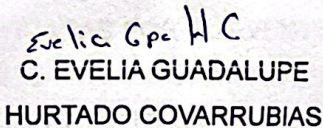 Evelia Gpe H C
C. EVELIA GUADALUPE
HURTADO COVARRUBIAS